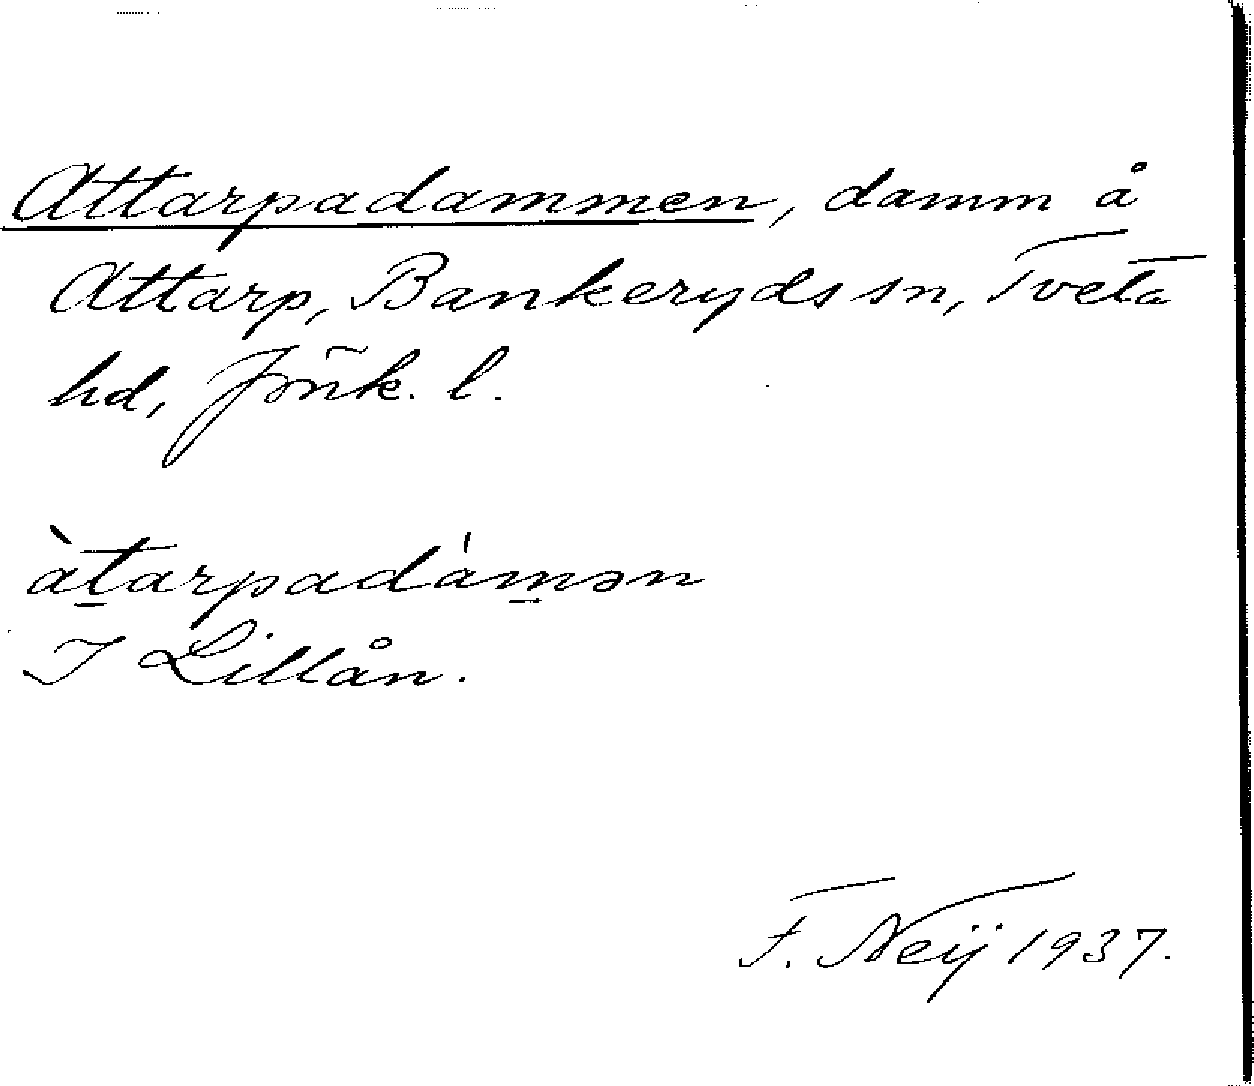 Attarpadammen, damm å
Attarp, Bankeryds sn, Tveta
hd, Jönk. l.
àt̠arpadám̠ən
I Lillån.
F. Neij 1937.